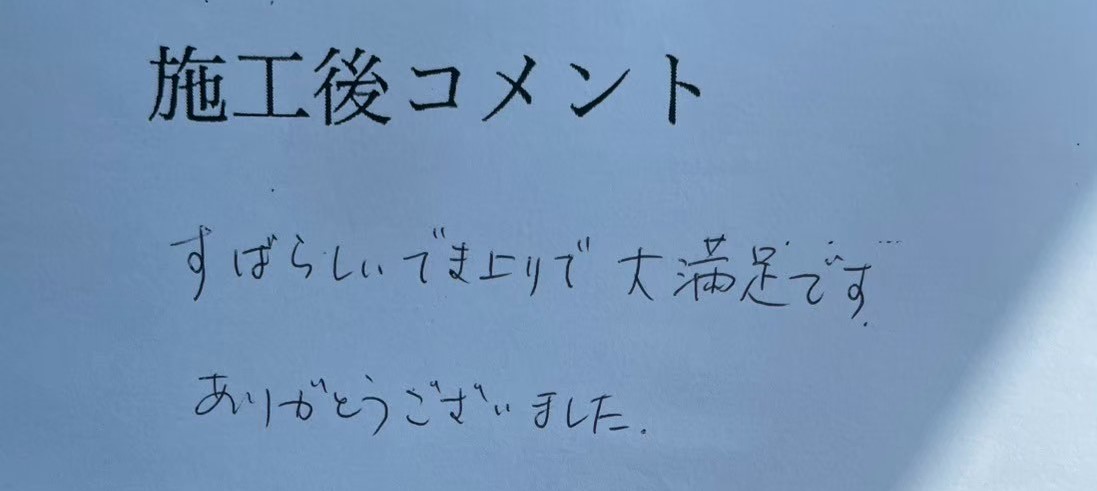 施工後コメント
すばらしいでき上りで大満足です.
ありがとうございました.